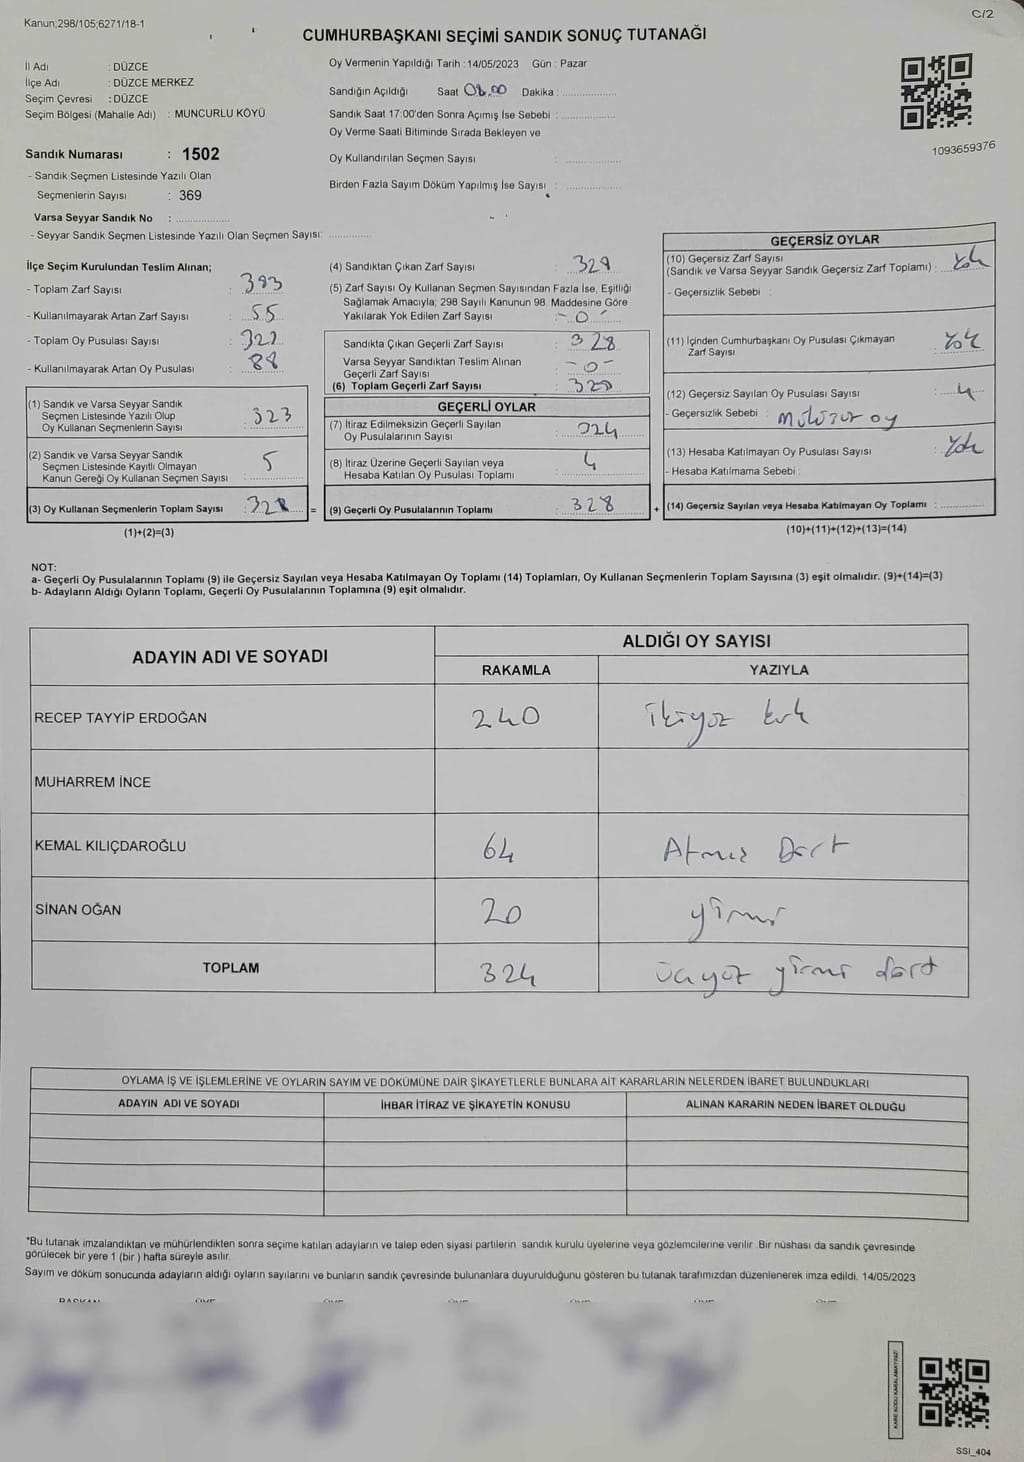 Kanun;298/105;6271/18-1
C/2
CUMHURBAŞKANI SEÇİMİ SANDIK SONUÇ TUTANAĞI
İl Adı : DÜZCE
İlçe Adı : DÜZCE MERKEZ
Seçim Çevresi : DÜZCE
Seçim Bölgesi (Mahalle Adı) : MUNCURLU KÖYÜ
Sandık Numarası : 1502
- Sandık Seçmen Listesinde Yazılı Olan
Seçmenlerin Sayısı : 369
Varsa Seyyar Sandık No : ....................
- Seyyar Sandık Seçmen Listesinde Yazılı Olan Seçmen Sayısı: ...............
Oy Vermenin Yapıldığı Tarih : 14/05/2023 Gün : Pazar
Sandığın Açıldığı Saat 08.00 Dakika : ...............
Sandık Saat 17:00'den Sonra Açımış İse Sebebi : ...............
Oy Verme Saati Bitiminde Sırada Bekleyen ve
Oy Kullandırılan Seçmen Sayısı : ...............
Birden Fazla Sayım Döküm Yapılmış İse Sayısı : ...............
1093659376
İlçe Seçim Kurulundan Teslim Alınan;
- Toplam Zarf Sayısı : 383
- Kullanılmayarak Artan Zarf Sayısı : 55
- Toplam Oy Pusulası Sayısı :
- Kullanılmayarak Artan Oy Pusulası : 88
(1) Sandık ve Varsa Seyyar Sandık
Seçmen Listesinde Yazılı Olup
Oy Kullanan Seçmenlerin Sayısı : 323
(2) Sandık ve Varsa Seyyar Sandık
Seçmen Listesinde Kayıtlı Olmayan
Kanun Gereği Oy Kullanan Seçmen Sayısı : 5
(3) Oy Kullanan Seçmenlerin Toplam Sayısı : 328 =
(1)+(2)=(3)
(4) Sandıktan Çıkan Zarf Sayısı : 328
(5) Zarf Sayısı Oy Kullanan Seçmen Sayısından Fazla İse, Eşitliği
Sağlamak Amacıyla; 298 Sayılı Kanunun 98. Maddesine Göre
Yakılarak Yok Edilen Zarf Sayısı : - 0 -
Sandıkta Çıkan Geçerli Zarf Sayısı : 328
Varsa Seyyar Sandıktan Teslim Alınan
Geçerli Zarf Sayısı : - 0 -
(6) Toplam Geçerli Zarf Sayısı : 328
GEÇERLİ OYLAR
(7) İtiraz Edilmeksizin Geçerli Sayılan
Oy Pusulalarının Sayısı : 324
(8) İtiraz Üzerine Geçerli Sayılan veya
Hesaba Katılan Oy Pusulası Toplamı : 4
(9) Geçerli Oy Pusulalarının Toplamı : 328 +
GEÇERSİZ OYLAR
(10) Geçersiz Zarf Sayısı
(Sandık ve Varsa Seyyar Sandık Geçersiz Zarf Toplamı) : Yok
- Geçersizlik Sebebi :
(11) İçinden Cumhurbaşkanı Oy Pusulası Çıkmayan
Zarf Sayısı : Yok
(12) Geçersiz Sayılan Oy Pusulası Sayısı : 4
- Geçersizlik Sebebi : Mühürsüz oy
(13) Hesaba Katılmayan Oy Pusulası Sayısı : Yok
- Hesaba Katılmama Sebebi :
(14) Geçersiz Sayılan veya Hesaba Katılmayan Oy Toplamı : ...............
(10)+(11)+(12)+(13)=(14)
NOT:
a- Geçerli Oy Pusulalarının Toplamı (9) ile Geçersiz Sayılan veya Hesaba Katılmayan Oy Toplamı (14) Toplamları, Oy Kullanan Seçmenlerin Toplam Sayısına (3) eşit olmalıdır. (9)+(14)=(3)
b- Adayların Aldığı Oyların Toplamı, Geçerli Oy Pusulalarının Toplamına (9) eşit olmalıdır.
ADAYIN ADI VE SOYADI
ALDIĞI OY SAYISI
RAKAMLA YAZIYLA
RECEP TAYYİP ERDOĞAN 240 ikiyüz kırk
MUHARREM İNCE
KEMAL KILIÇDAROĞLU 64 Atmış Dört
SİNAN OĞAN 20 yirmi
TOPLAM 324 üçyüz yirmi dört
OYLAMA İŞ VE İŞLEMLERİNE VE OYLARIN SAYIM VE DÖKÜMÜNE DAİR ŞİKAYETLERLE BUNLARA AİT KARARLARIN NELERDEN İBARET BULUNDUKLARI
ADAYIN ADI VE SOYADI İHBAR İTİRAZ VE ŞİKAYETİN KONUSU ALINAN KARARIN NEDEN İBARET OLDUĞU
*Bu tutanak imzalandıktan ve mühürlendikten sonra seçime katılan adayların ve talep eden siyasi partilerin sandık kurulu üyelerine veya gözlemcilerine verilir. Bir nüshası da sandık çevresinde
görülecek bir yere 1 (bir ) hafta süreyle asılır.
Sayım ve döküm sonucunda adayların aldığı oyların sayılarını ve bunların sandık çevresinde bulunanlara duyurulduğunu gösteren bu tutanak tarafımızdan düzenlenerek imza edildi. 14/05/2023
KARE KODU KARALAMAYINIZ!
SSİ_404